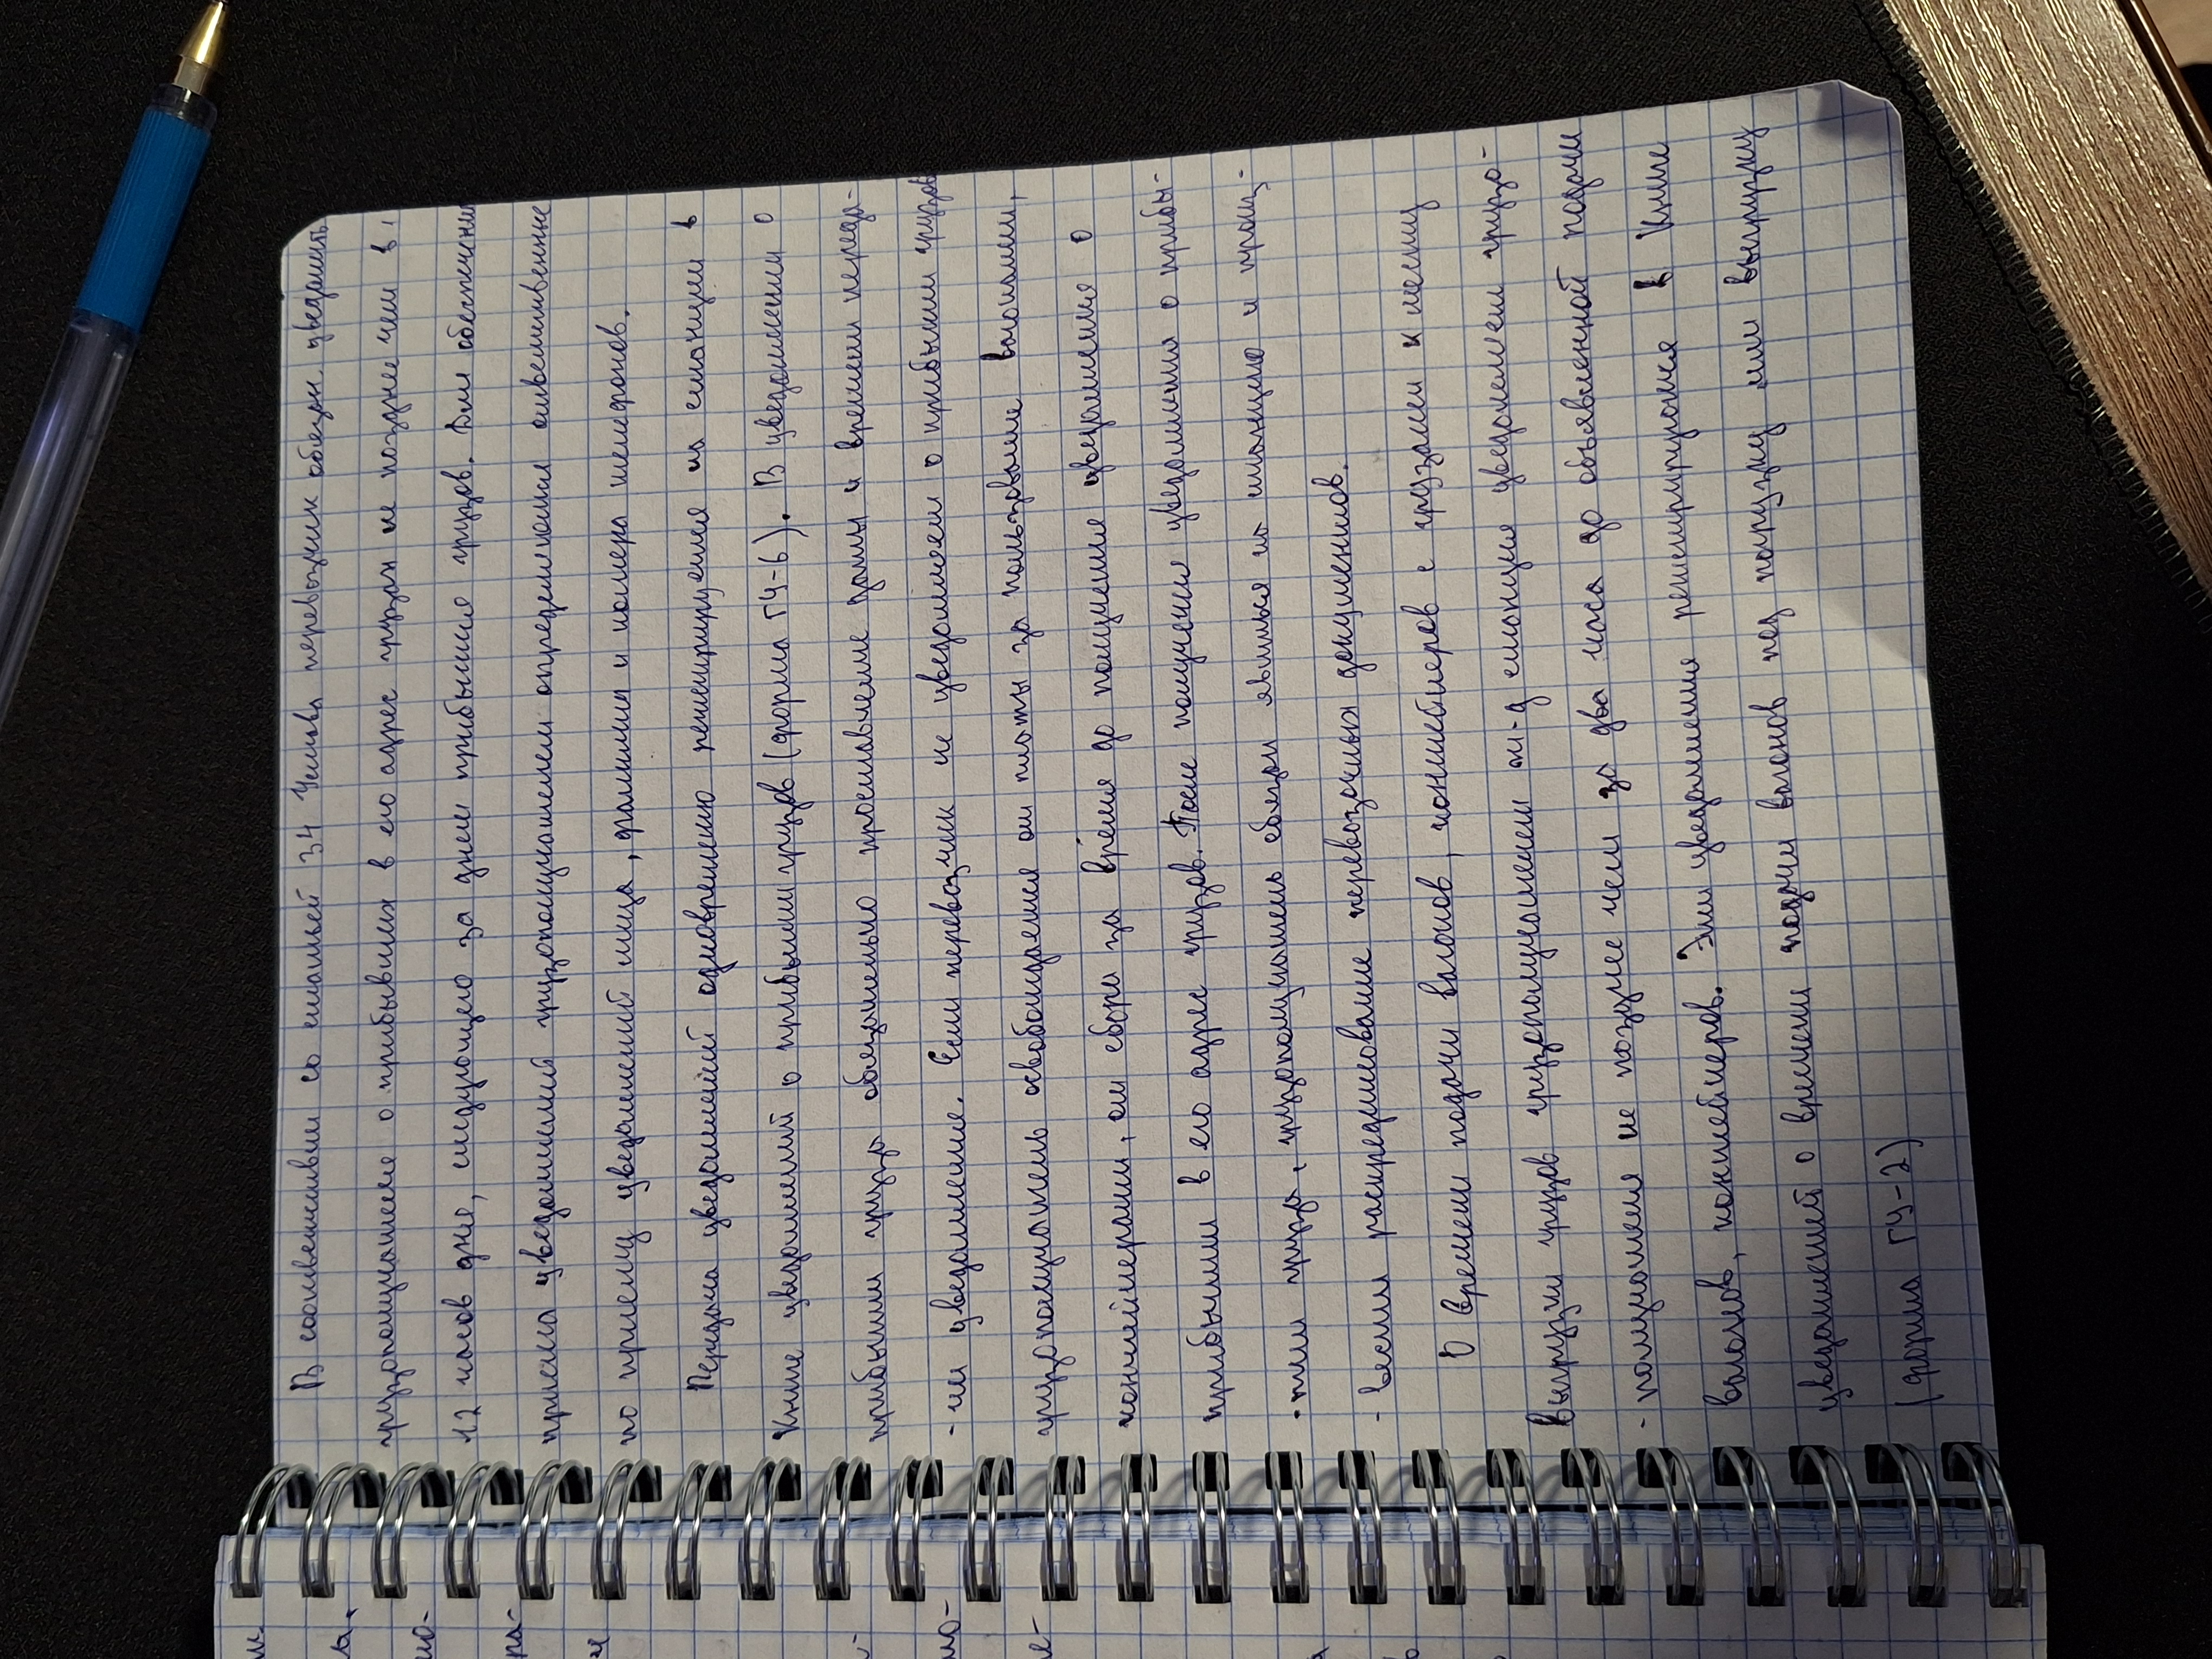 В соответствии со статьёй 34 Устава перевозчик обязан уведомить
грузополучателя о прибывших в его адрес грузах не позднее чем в
12 часов дня, следующего за днем прибытия грузов. Для обеспечения
приема уведомлений грузополучателем определяются ответственные
по приему уведомлений лица, фамилии и номера телефонов.
Передача уведомлений одновременно регистрируется на станции в
Книге уведомлений о прибытии грузов (форма ГУ-6). В уведомлении о
прибытии груза обязательно проставление даты и времени переда-
-чи уведомления. Если перевозчик не уведомляет о прибытии грузов
грузополучатель освобождается от платы за пользование вагонами,
контейнерами, от сбора за время до получения уведомления о
прибытии в его адрес грузов. После получения уведомления о прибы-
-тии груза, грузополучатель обязан явиться на станцию и произ-
-вести раскредитование перевозочных документов.
О времени подачи вагонов, контейнеров с грузами к месту
выгрузки грузов грузополучателем ж-д станция уведомляет грузо-
-получателя не позднее чем за два часа до объявленной подачи
вагонов, контейнеров. Эти уведомления регистрируются в Книге
уведомлений о времени подачи вагонов под погрузку или выгрузку
(форма ГУ-2)